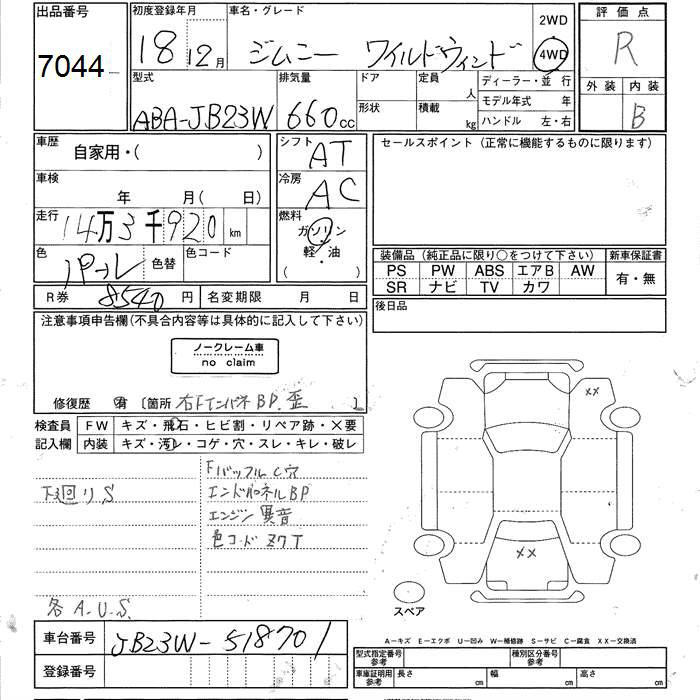 出品番号
7044
初度登録年月
18 12月
車名・グレード
ジムニー ワイルドウィンド
2WD
4WD
評価点
R
外装 内装
B
型式
ABA-JB23W
排気量
660cc
ドア
形状
定員
人
積載
kg
ディーラー・並行
モデル年式 年
ハンドル 左・右
車歴
自家用・( )
シフト
AT
車検
年 月( 日)
冷房
AC
走行
14万3千920km
燃料
ガソリン
軽・油
( )
色
パール
色替
色コード
R券 8540円
名変期限 月 日
セールスポイント(正常に機能するものに限ります)
装備品(純正品に限り○をつけて下さい)
新車保証書
PS PW ABS エアB AW
SR ナビ TV カワ
有・無
後日品
注意事項申告欄(不具合内容等は具体的に記入して下さい)
ノークレーム車
no claim
修復歴 有 〔箇所 右FインパネBP.歪 〕
検査員
記入欄
FW キズ・飛石・ヒビ割・リペア跡・×要
内装 キズ・汚レ・コゲ・穴・スレ・キレ・破レ
下廻りS
FバッフルC穴
エンドパネルBP
エンジン異音
色コード Z7T
各A.U.S.
××
××
スペア
A―キズ E―エクボ U―凹み W―補修跡 S―サビ C―腐食 XX―交換済
車台番号 JB23W-518701
登録番号
型式指定番号
参考
種別区分番号
参考
車庫証明用
参考
長さ cm
幅 cm
高さ cm